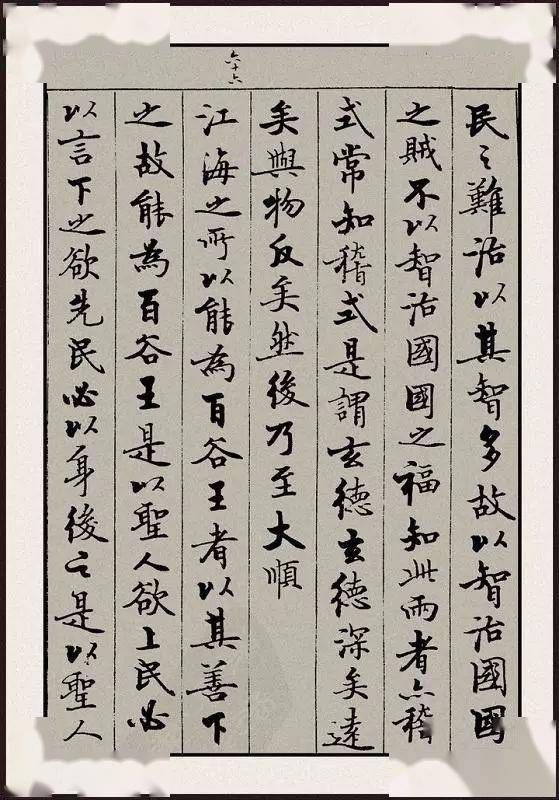 民之難治以其智多故以智治國國
之賊不以智治國國之福知此兩者亦稽
式常知稽式是謂玄德玄德深矣遠
矣與物反矣然後乃至大順
六十六
江海之所以能為百谷王者以其善下
之故能為百谷王是以聖人欲上民必
以言下之欲先民必以身後之是以聖人